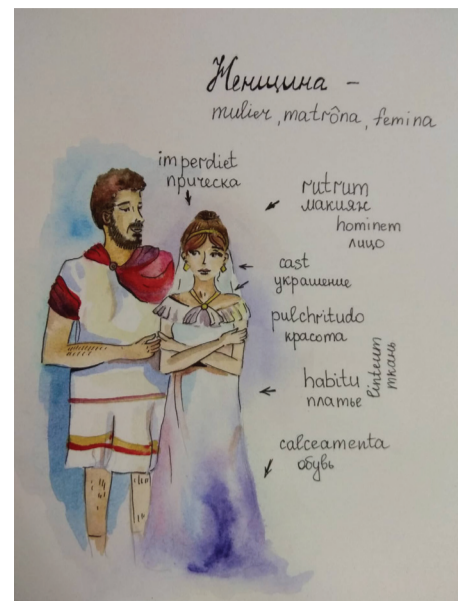 Женщина –
mulier, matrôna, femina
imperdiet
прическа
rutrum
макияж
hominem
лицо
cast
украшение
pulchritudo
красота
habitu
платье
linteum
ткань
calceamenta
обувь